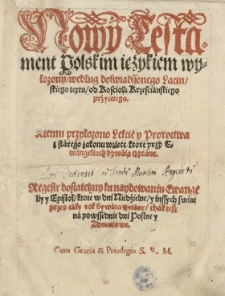 Nowy Testa-
ment Polskim ięzykiem wy-
łożony/ według doświadszonego Lacin/
skiego textu/ od Kościoła Krześciańskiego
przyiętego.
Ktemu przyłożono Lekcie y Proroctwa
z starego zakonu wzięte/ktore przed E-
wangeliami bywaią czytane.
Regestr dostateczny ku naydowaniu Ewange
liy y Epistoł/ ktore w dni Niedzielne/ y inssych świąt
przez cały rok bywaią czytane/
na powssednie dni Postne y
Cum Gracia & Priuilegio S. R. M.